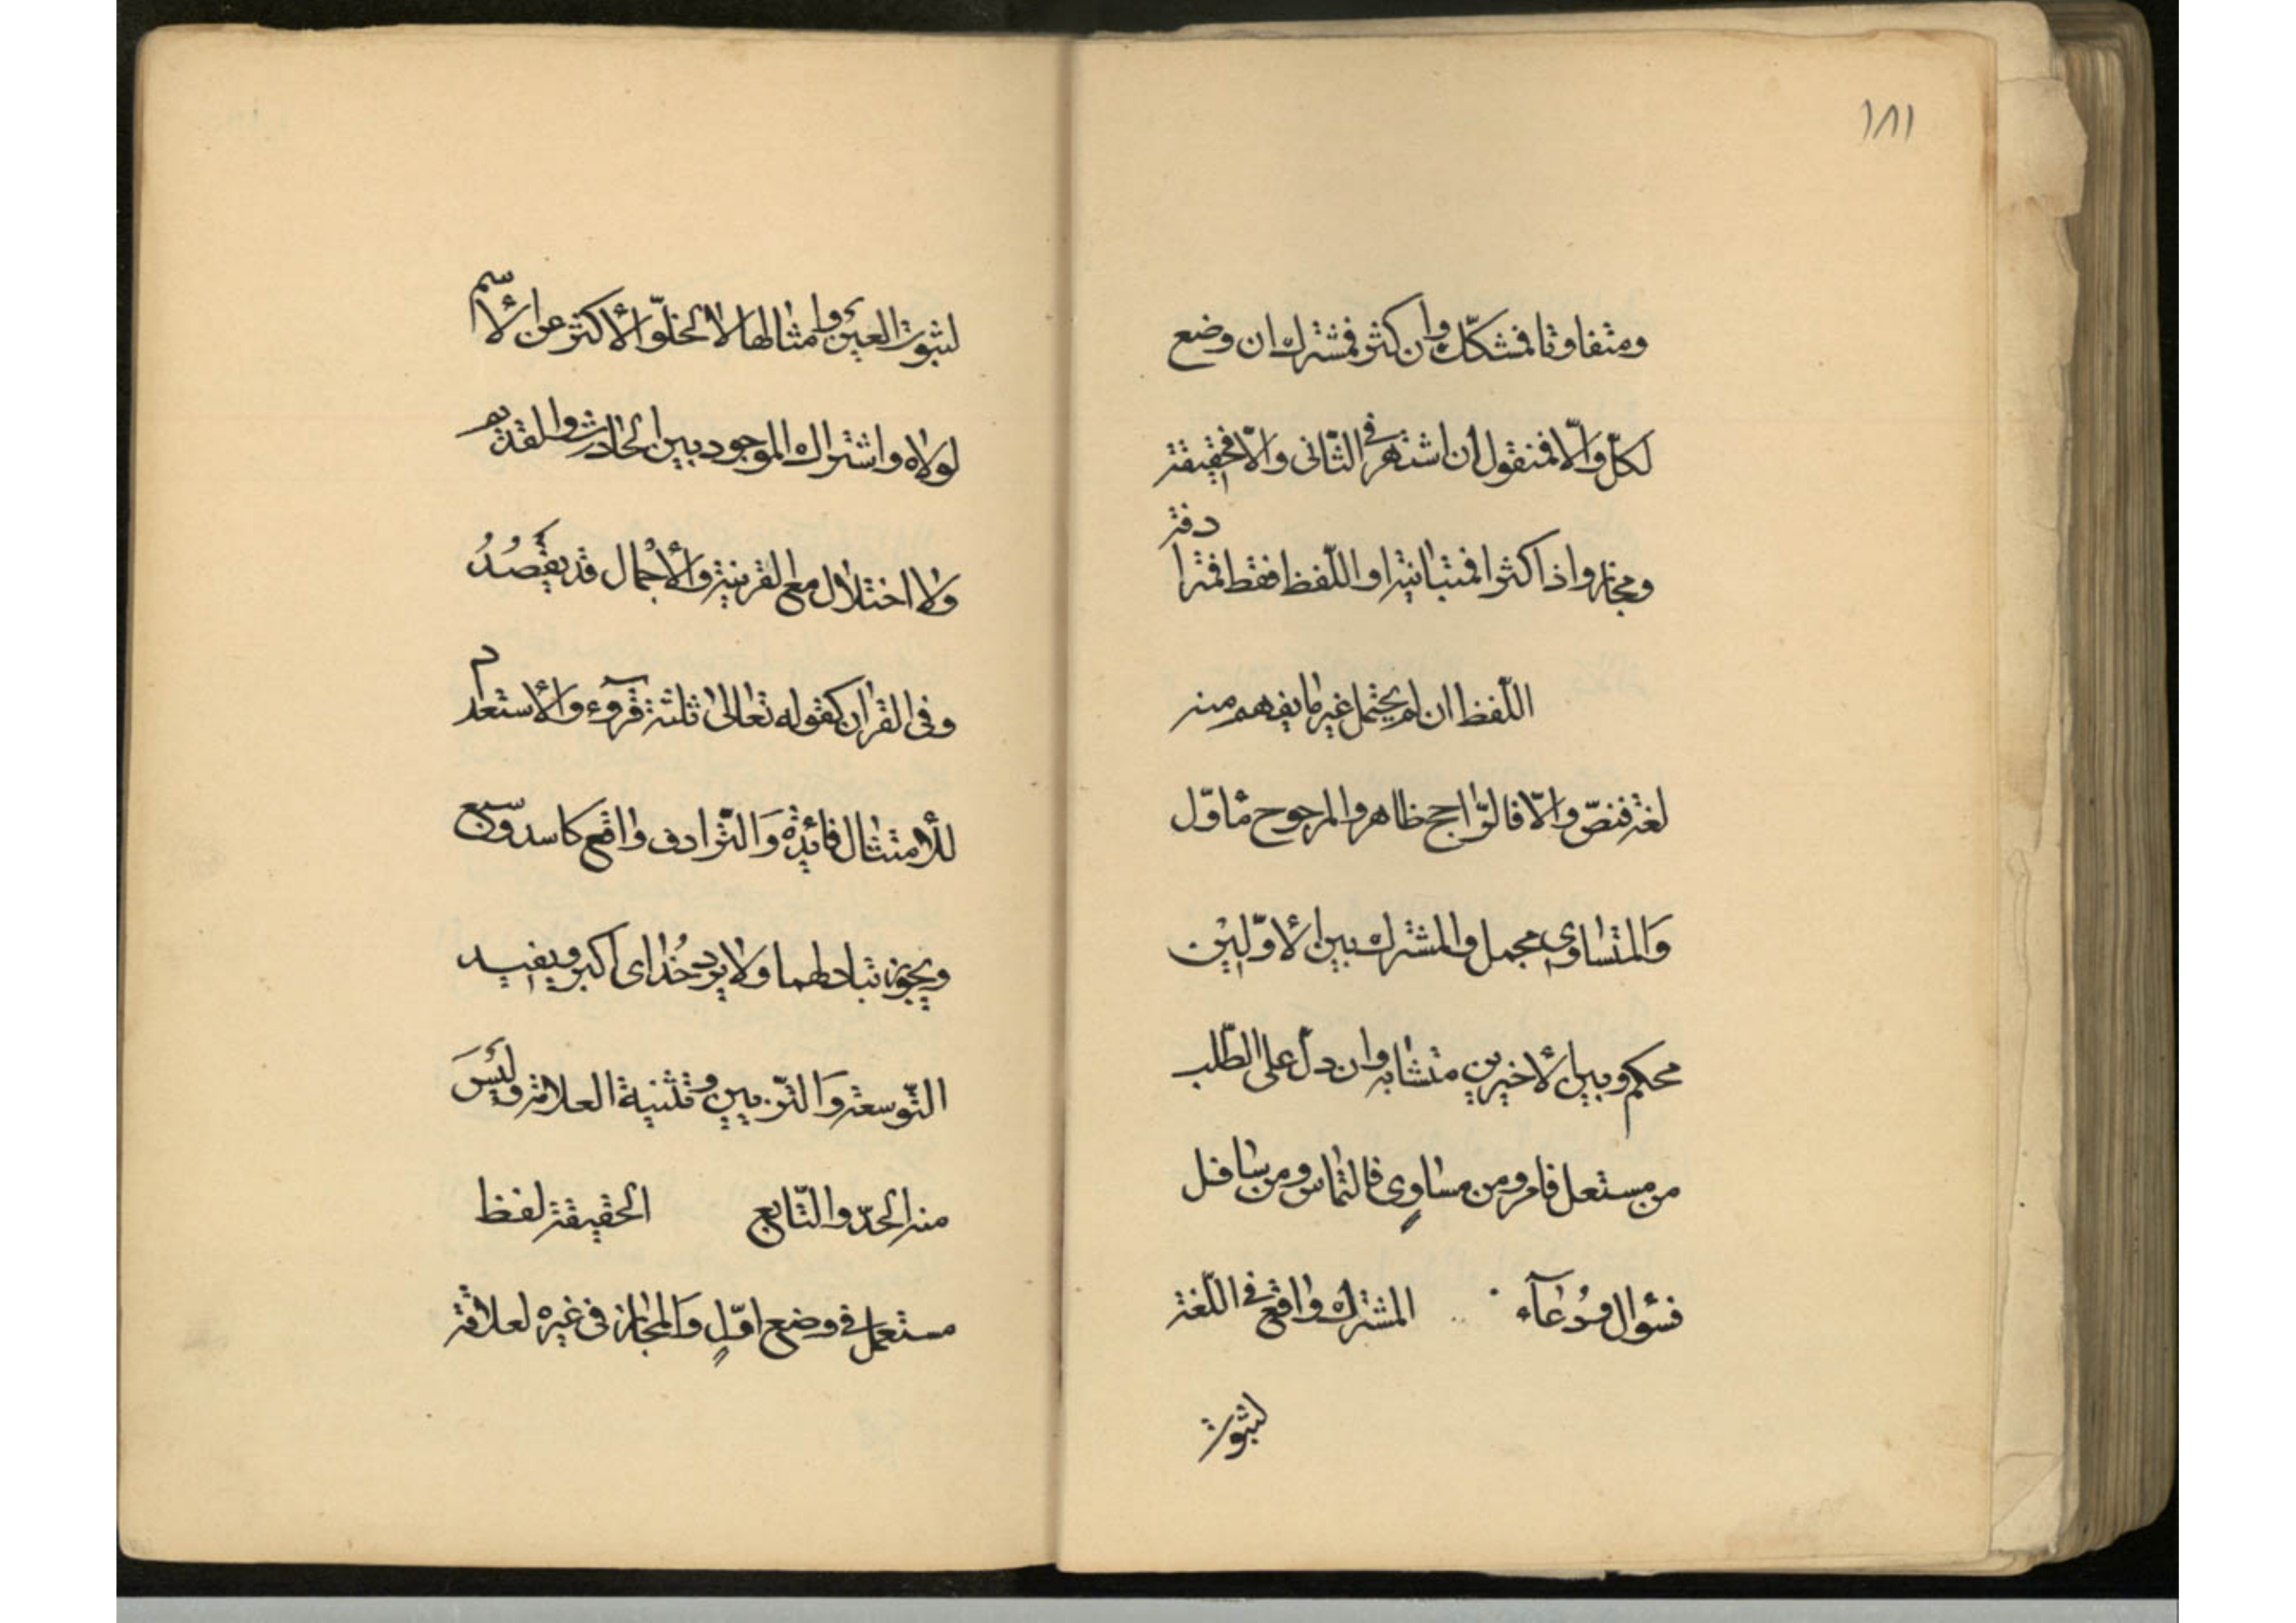 ١٨١
ومتفاوتا فمشكّك وان كثر فمشترك ان وضع
لكلّ والّا فمنقول ان اشتهر فى الثّانى والّا فحقيقة
ومجاز واذا كثرا فمتباينة او اللّفظ فقط فمترادفة
اللّفظ ان لم يحتمل غير ما يفهم منه
لغة فنصّ والّا فالرّاجح ظاهر والمرجوح مأوّل
وَالمتساوى مجمل والمشترك بين الأوّلين
محكم وبين الأخيرين متشابه وان دلّ على الطّلب
من مستعل فامر ومن مساوٍ فالتماس ومن سافل
فسؤال ودُعآء المشترك واقع فى اللّغة
لثبوت
لثبوت العين وامثالها لا لخلوّ الأكثر عن الأسم
لولاه واشتراك الموجود بين الحادث والقديم
ولا اختلال مع القرينة والأجمال قد يُقصَدُ
وفى القران كقوله تعالى ثلثة قروٓء والأستعداد
للأمتثال فائدة وَالتّرادف واقع كاسد وسبع
ويجوز تبادلهما ولا يرد خُداى اكبر ويفيد
التّوسعة وَالتّزيين وتثنية العلامة وليسَ
منه الحدّ والتّابع الحقيقة لفظ
مستعمل فى وضع اوّلٍ وَالمجاز فى غيره لعلاقة